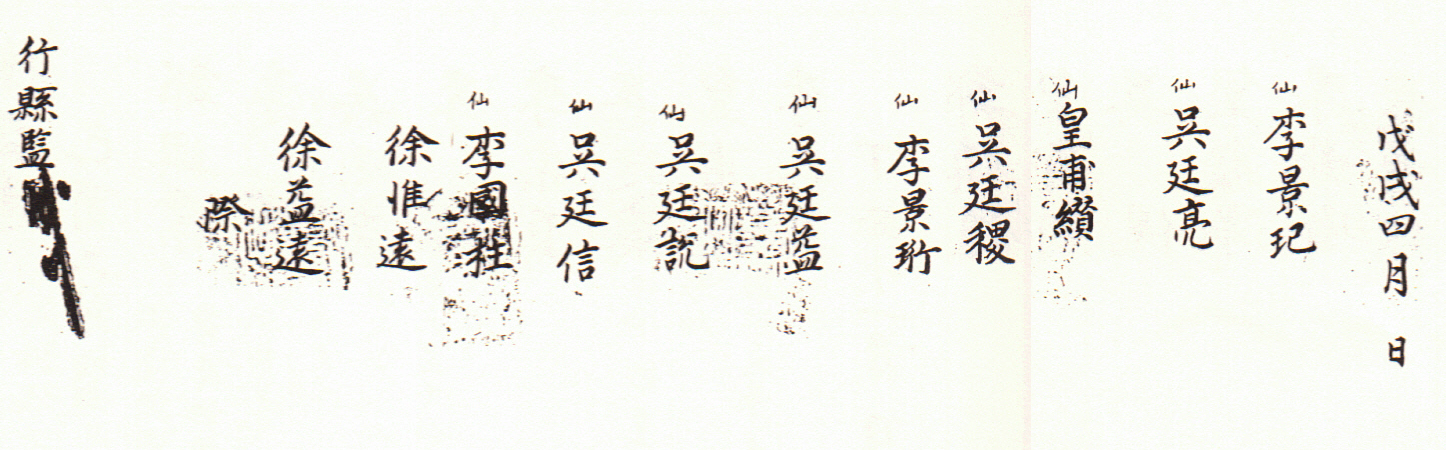 戊戌四月 日
仙 李景玘
仙 吳廷亮
仙 皇甫纘
仙 吳廷稷
仙 李景珩
仙 吳廷益
仙 吳廷說
仙 吳廷信
仙 李國柱
徐惟遠
徐益遠
際
行縣監